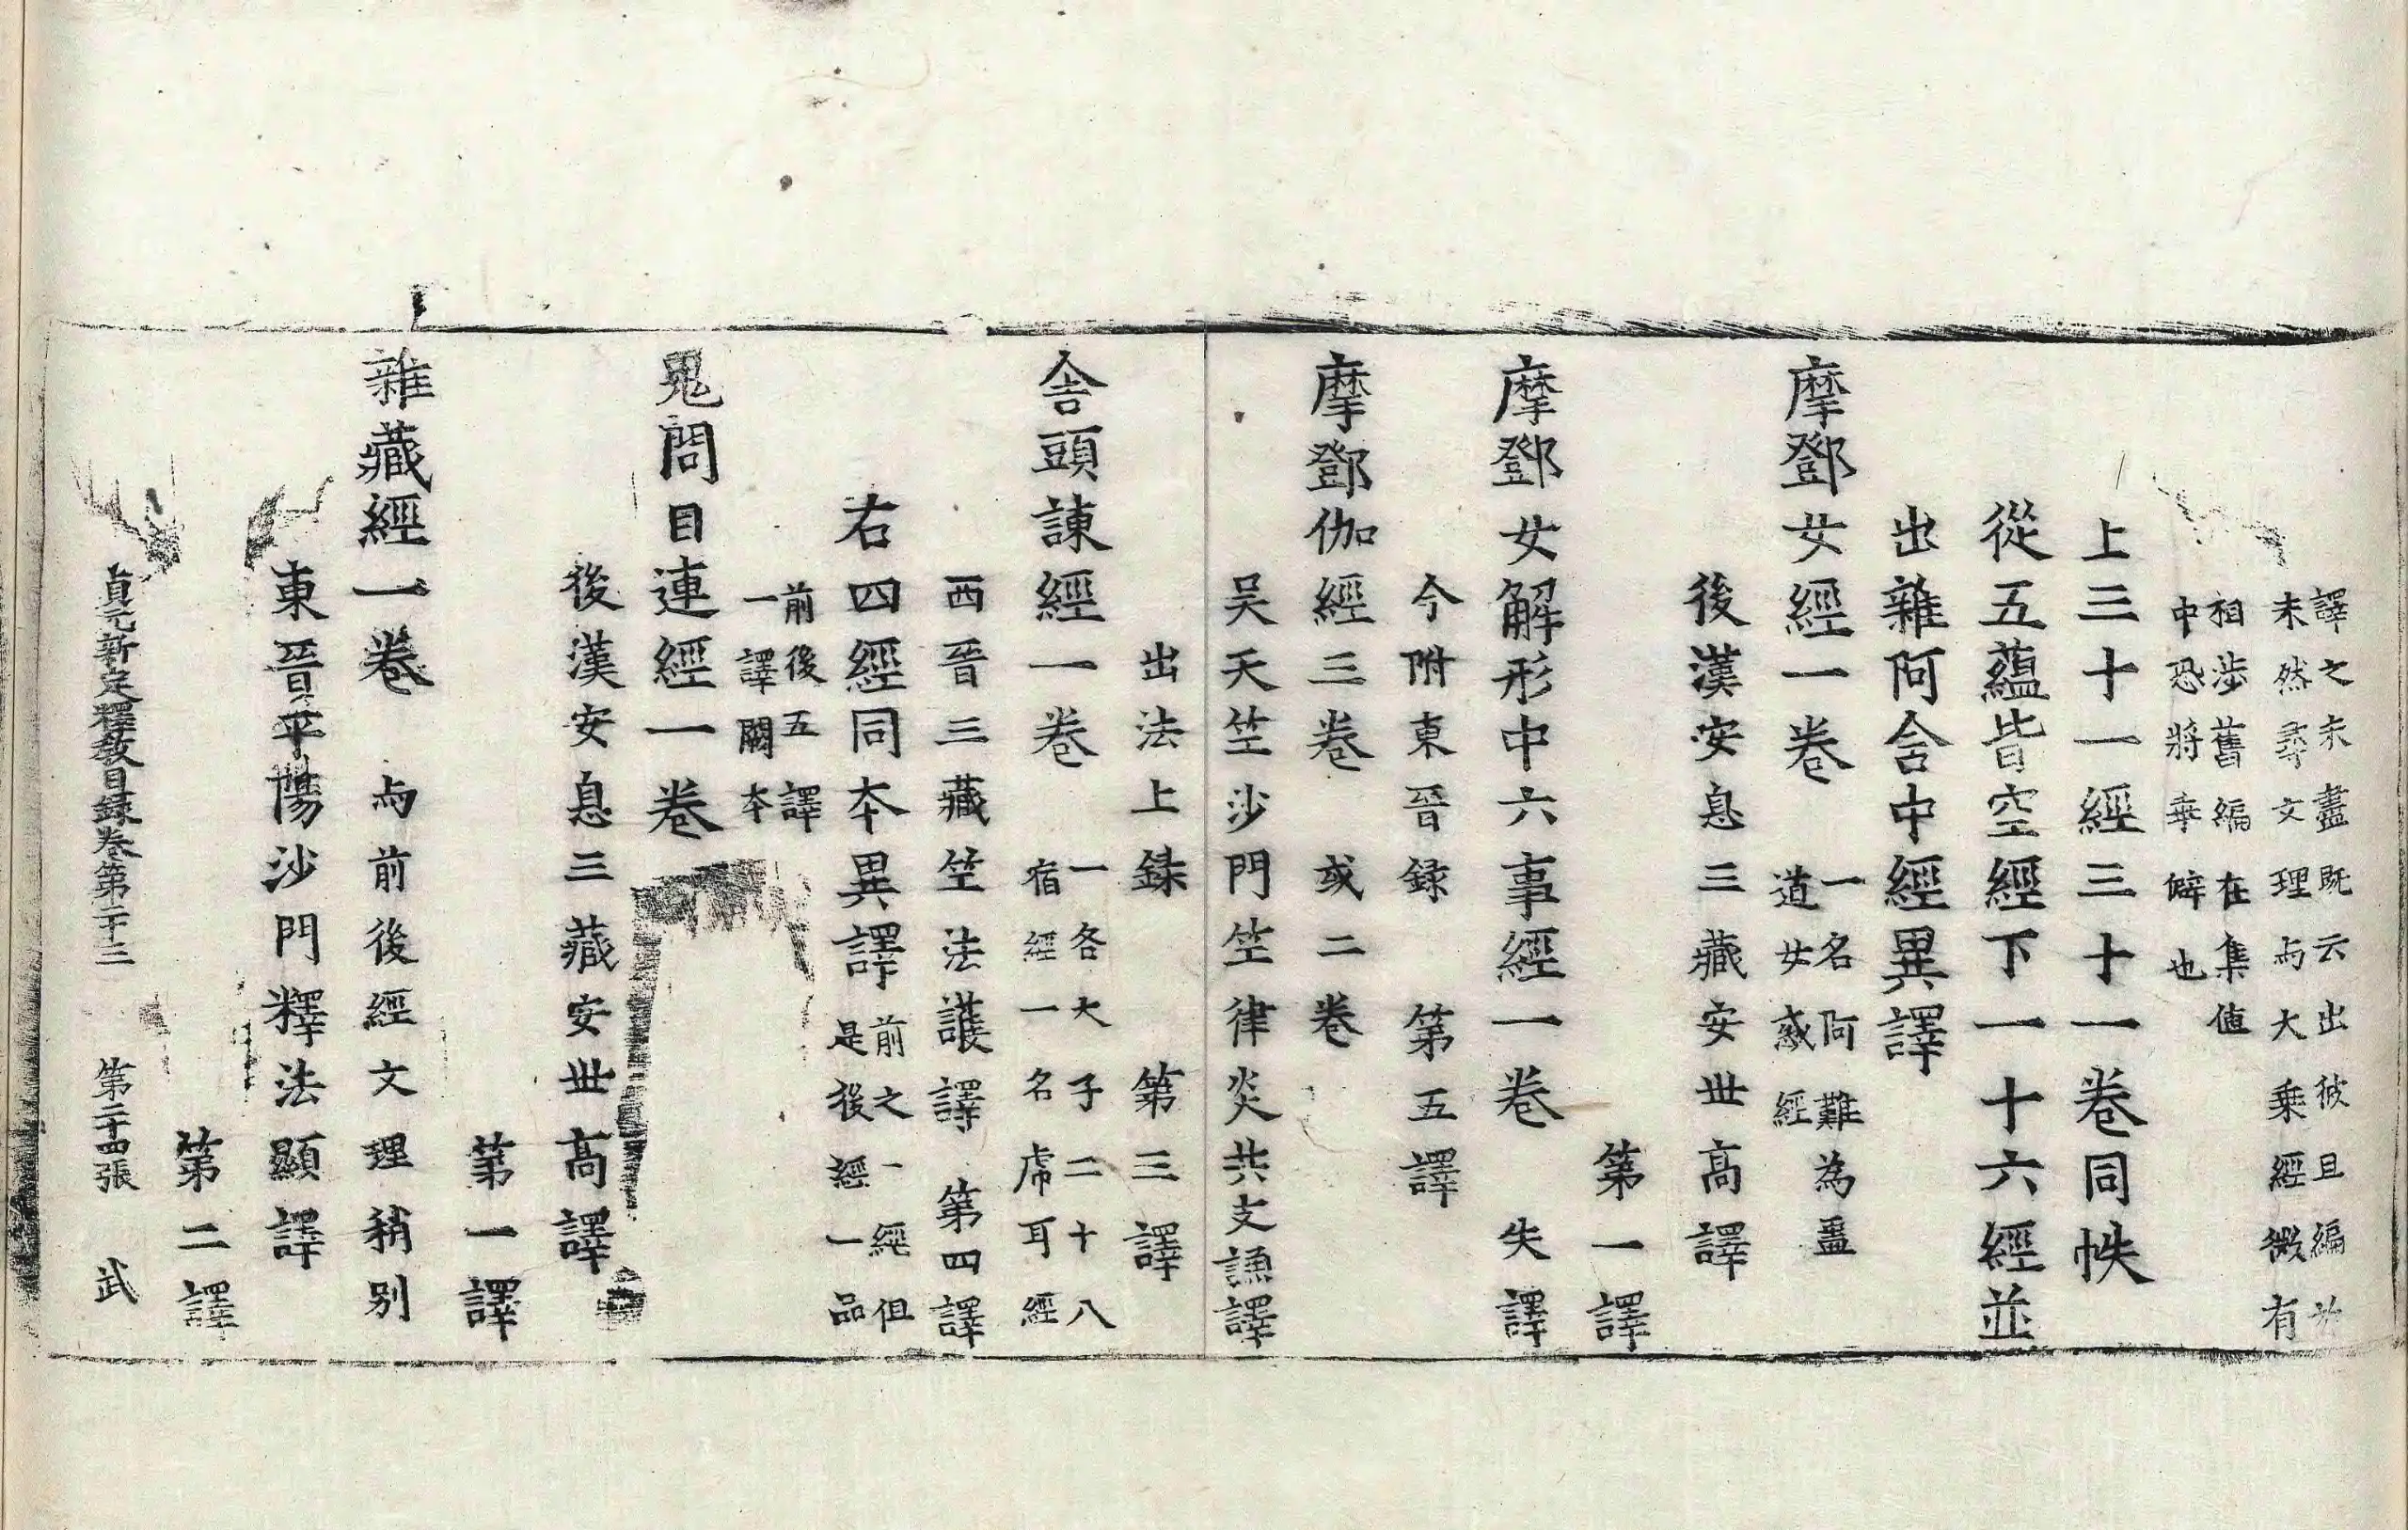 譯之未盡既云出彼且編
末然尋文理与大乘經微有
相涉舊編在集值
中恐將乖僻也
上三十一經三十一卷同帙
從五蘊皆空經下一十六經並
出雜阿含中經異譯
摩鄧女經一卷
一名阿難為蠱
道女惑經
後漢安息三藏安世高譯
第一譯
摩鄧女解形中六事經一卷
失譯
今附東晉録
第五譯
摩鄧伽經三卷
或二卷
吴天竺沙門竺律炎共支謙譯
出法上録
第三譯
舍頭諫經一卷
一名大子二十八
宿經一名虎耳經
西晉三藏竺法護譯
第四譯
右四經同本異譯
前之一經但
是後經一品
前後五譯
一譯闕本
鬼問目連經一卷
後漢安息三藏安世高譯
第一譯
雜藏經一卷
与前後經文理稍別
東晉平陽沙門釋法顯譯
第二譯
貞元新定釋教目録卷第二十三
第二十四張
武